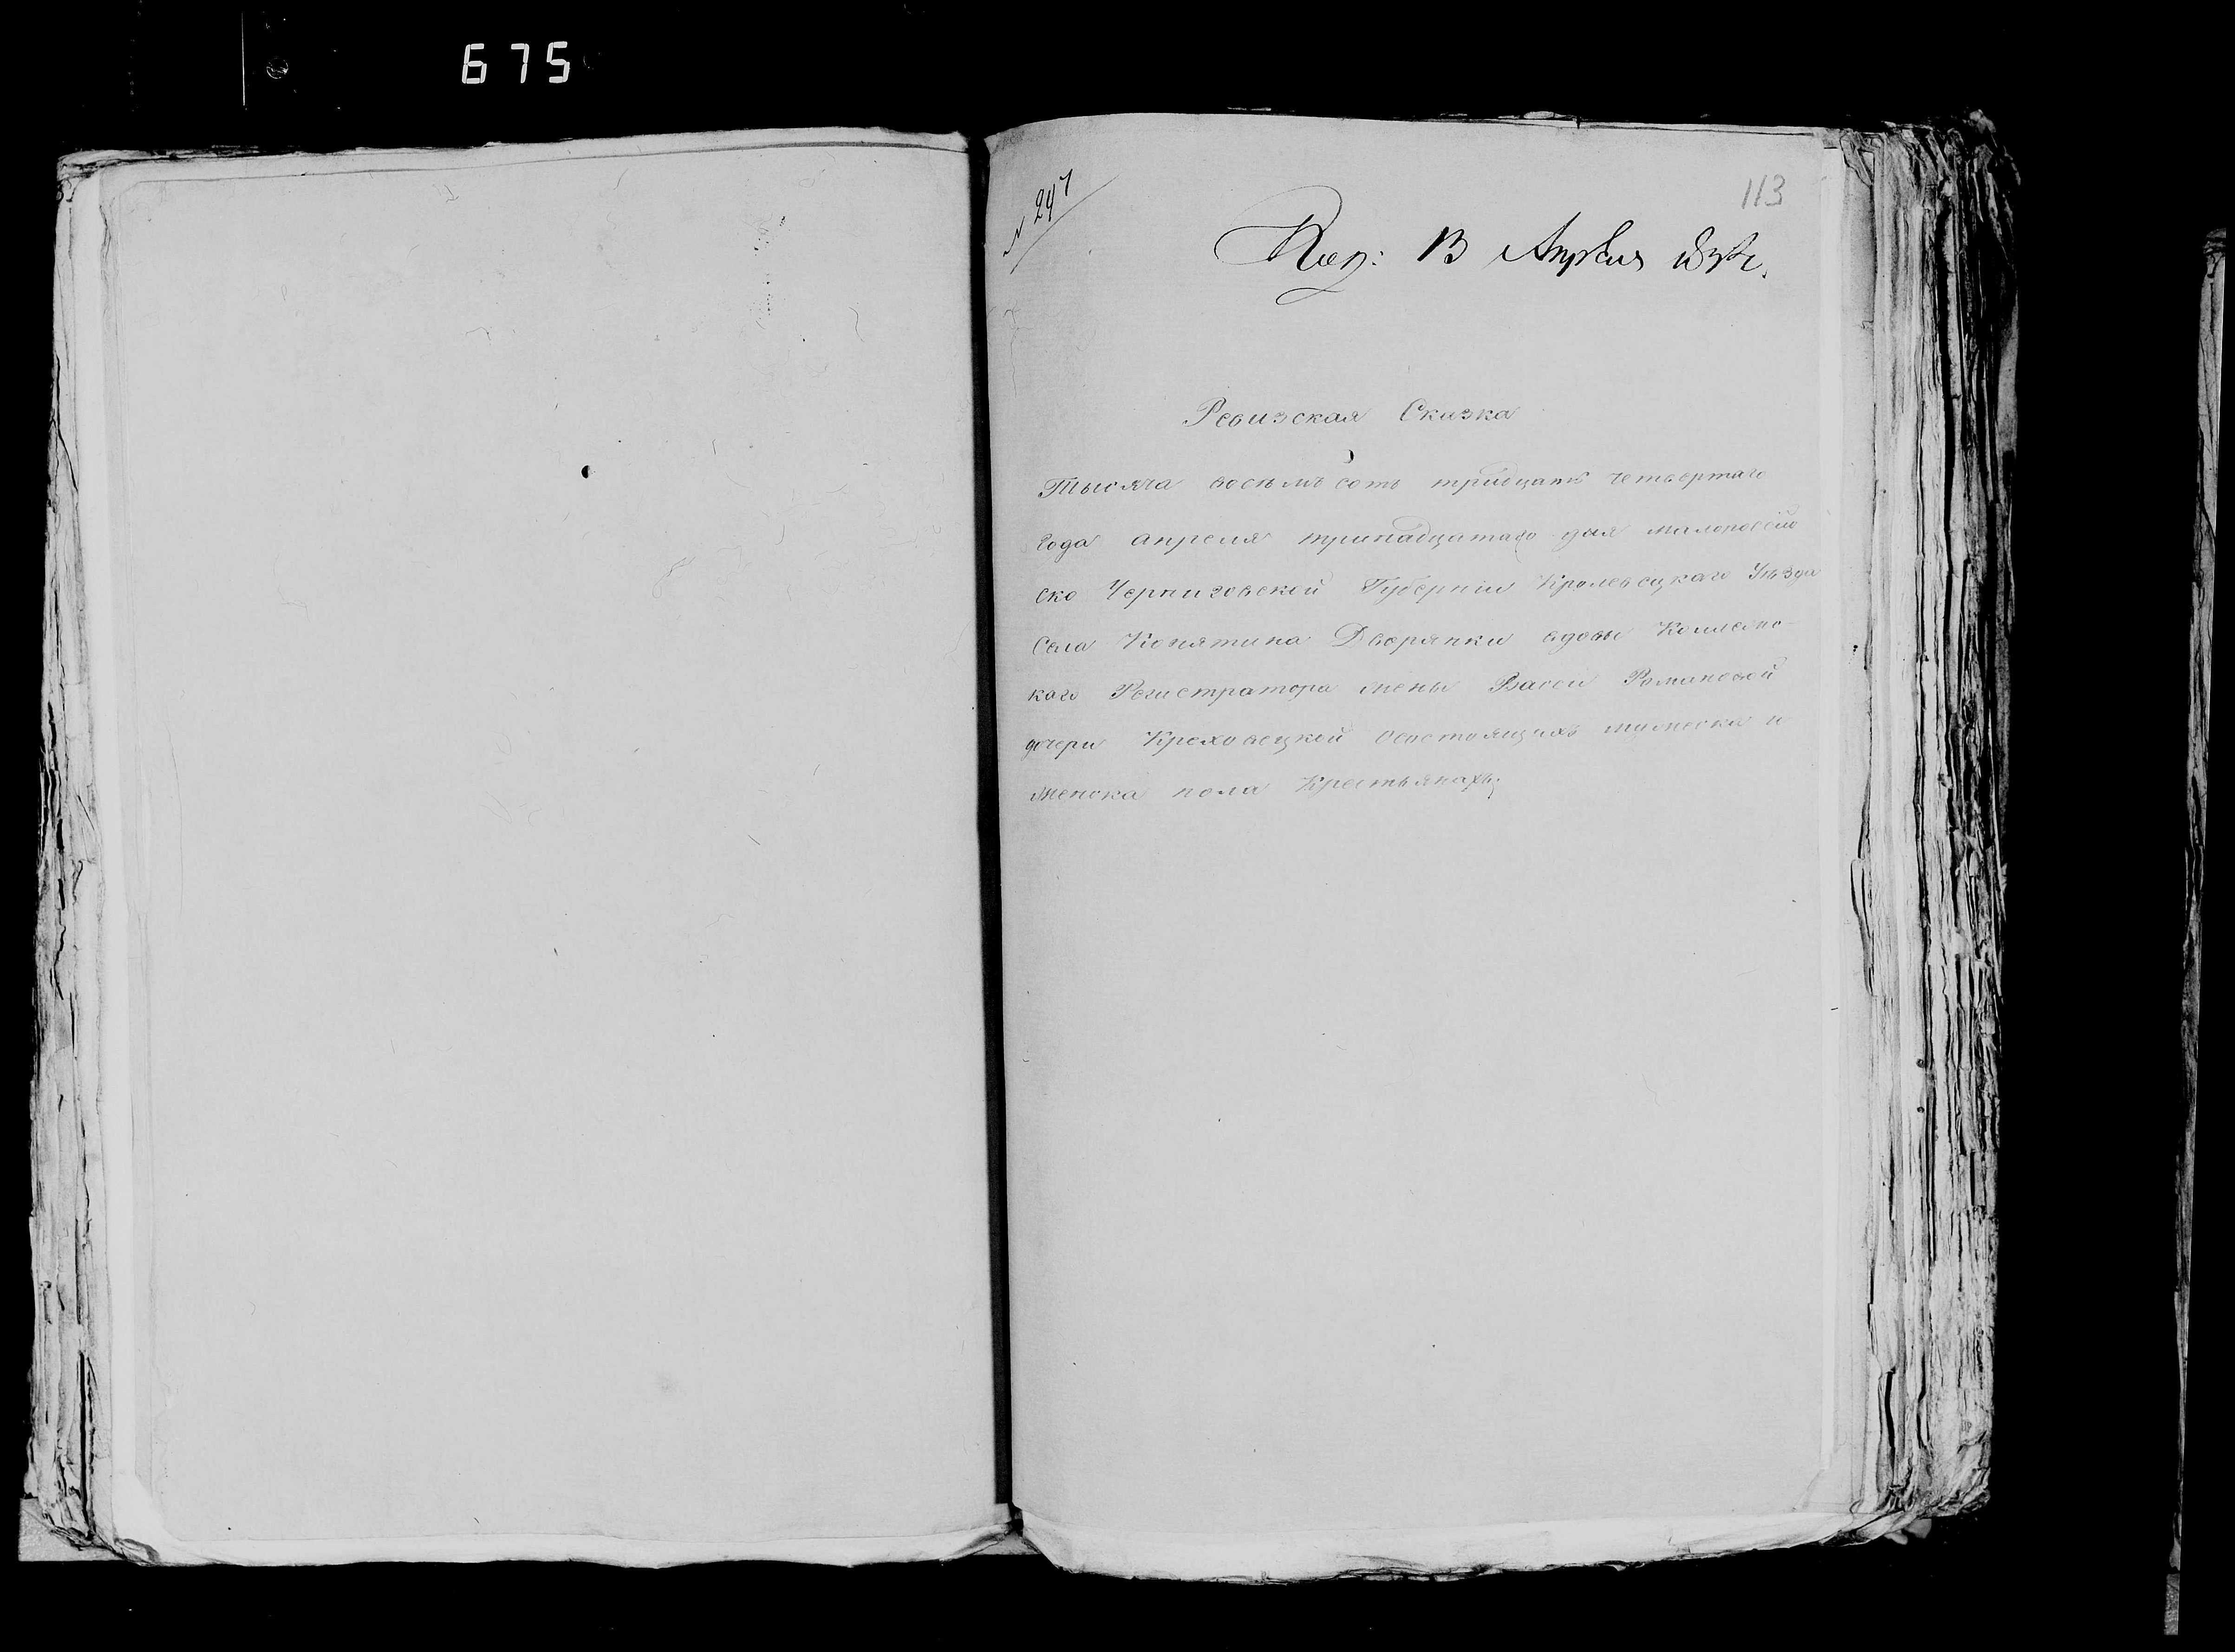 675
№ 247
113
Пол: 13 Апреля 1834.
Ревизская Сказка
Тысяча восемъ сотъ тридцать четвертаго
Года апреля тринадцатаго дня малороссiй
ско Черниговской Губернiи Кролевецкаго Уѣзда
Села Конятина Дворянки вдовы Коллежс-
каго Регистратора жены Васси Романовой
дочери Креховецкой Осостоящихъ мужеска и
женска пола Крестьянахъ;